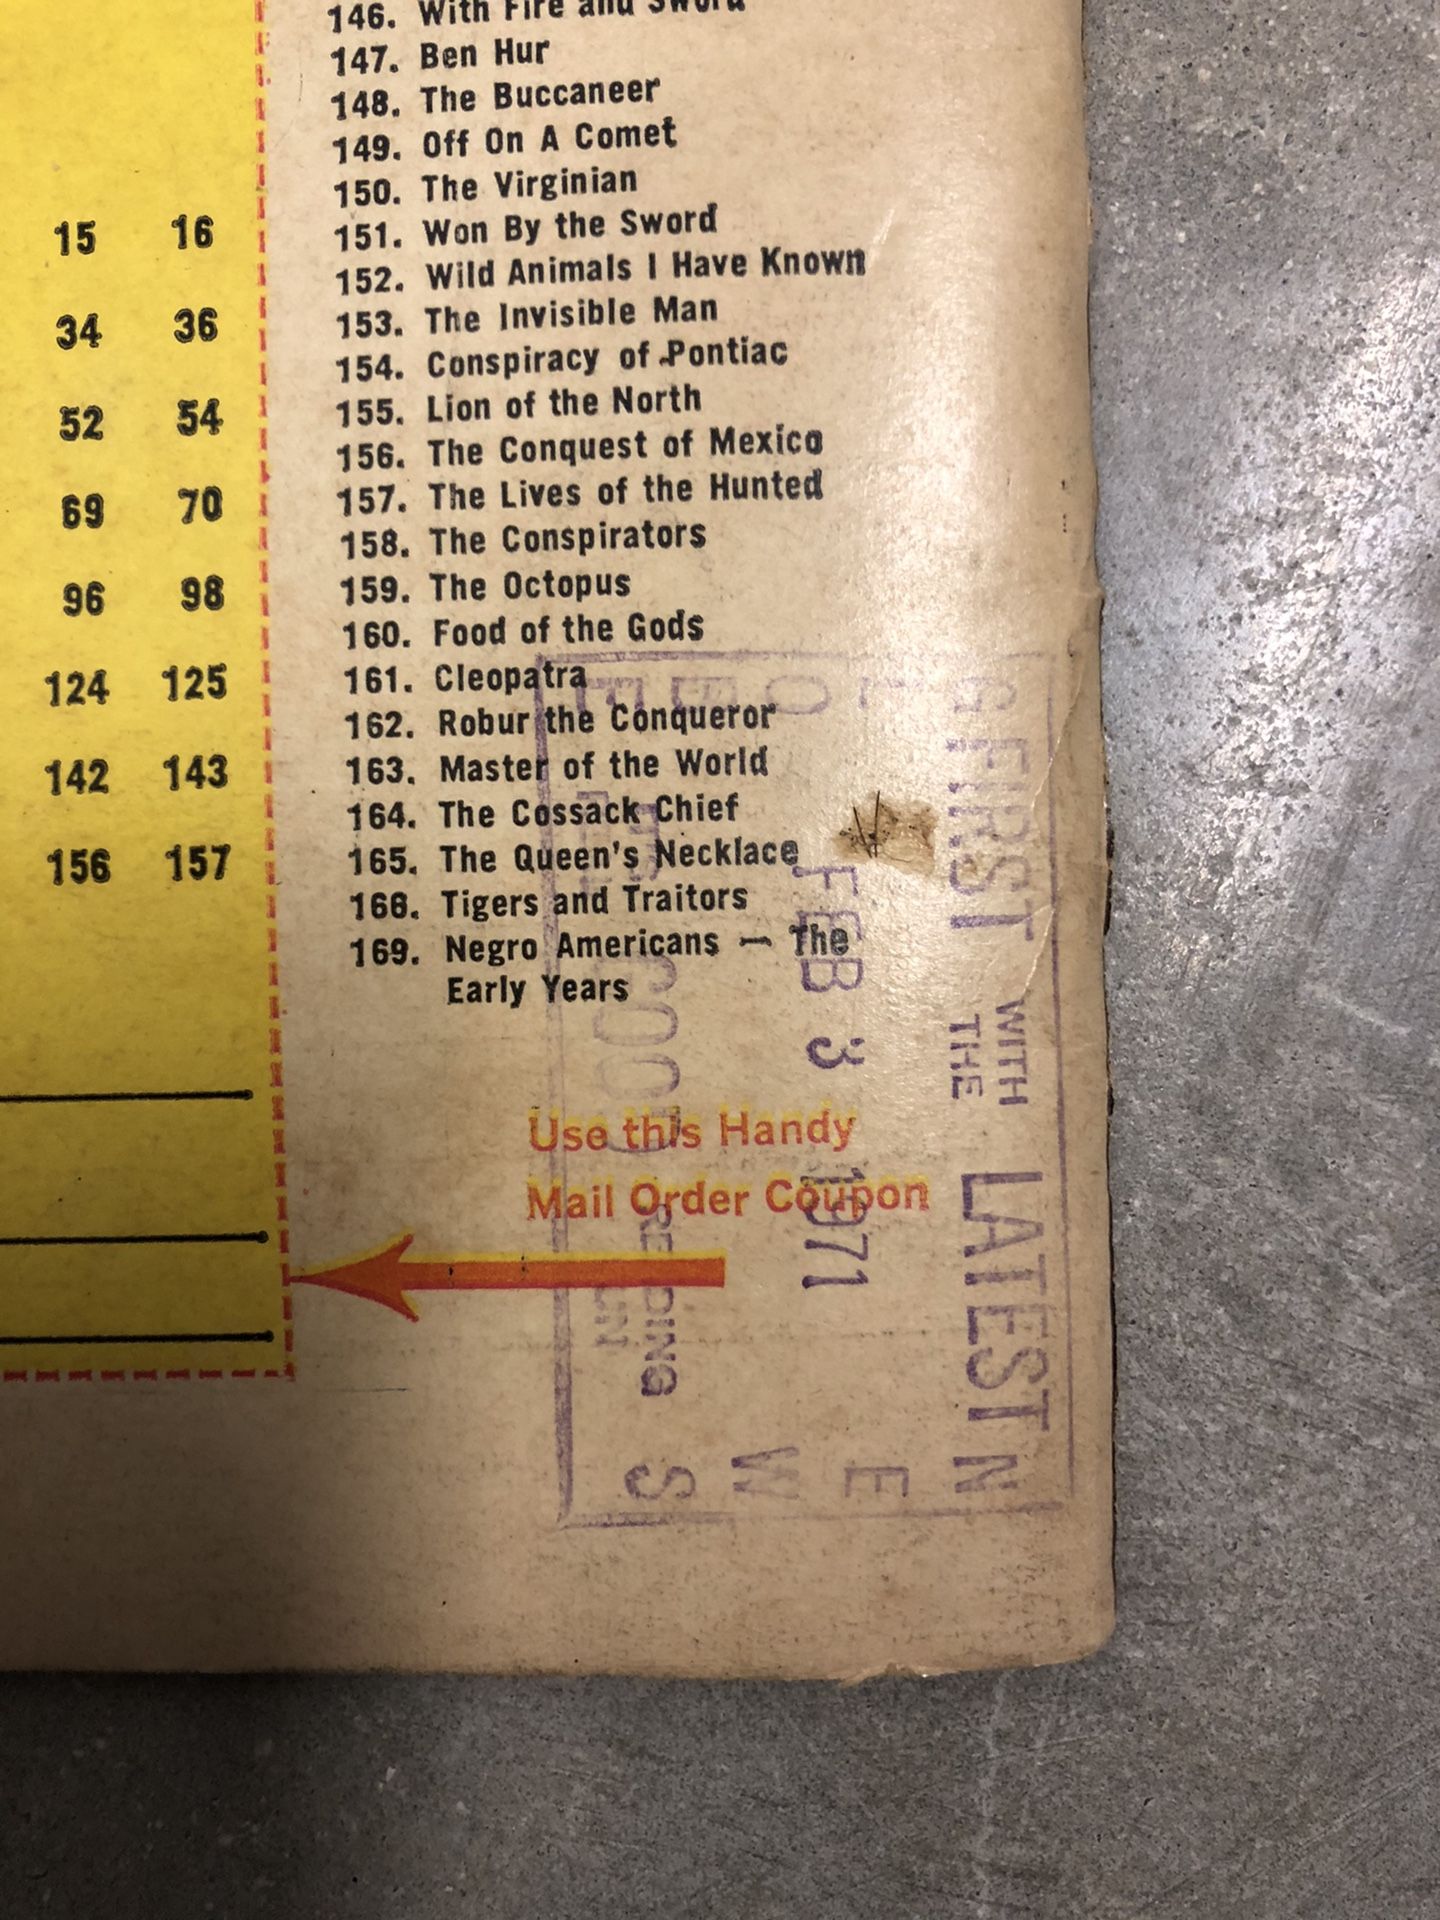 15 16
34 36
52 54
69 70
96 98
124 125
142 143
156 157
146. With Fire and Sword
147. Ben Hur
148. The Buccaneer
149. Off On A Comet
150. The Virginian
151. Won By the Sword
152. Wild Animals I Have Known
153. The Invisible Man
154. Conspiracy of Pontiac
155. Lion of the North
156. The Conquest of Mexico
157. The Lives of the Hunted
158. The Conspirators
159. The Octopus
160. Food of the Gods
161. Cleopatra
162. Robur the Conqueror
163. Master of the World
164. The Cossack Chief
165. The Queen's Necklace
166. Tigers and Traitors
169. Negro Americans — The
Early Years
Use this Handy
Mail Order Coupon
FIRST WITH THE LATEST
N E W S
FEB 3 1971
GOOD READING